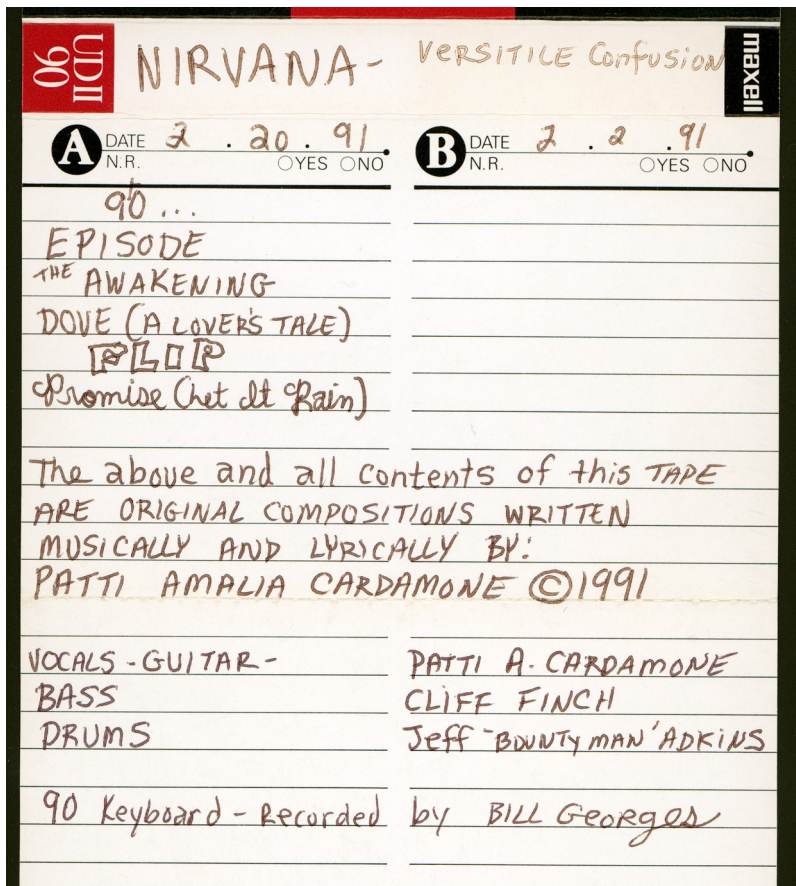 UDII 90
NIRVANA - VERSITILE Confusion
maxell
A DATE 2 . 20 . 91
N.R. ○YES ○NO
B DATE 2 . 2 . 91
N.R. ○YES ○NO
90 ...
EPISODE
THE AWAKENING
DOVE (A LOVER'S TALE)
FLIP
Promise (Let It Rain)
The above and all contents of this TAPE
ARE ORIGINAL COMPOSITIONS WRITTEN
MUSICALLY AND LYRICALLY BY:
PATTI AMALIA CARDAMONE ©1991
VOCALS - GUITAR - PATTI A. CARDAMONE
BASS CLIFF FINCH
DRUMS Jeff "BOUNTY MAN' ADKINS
90 Keyboard - Recorded by BILL Georges